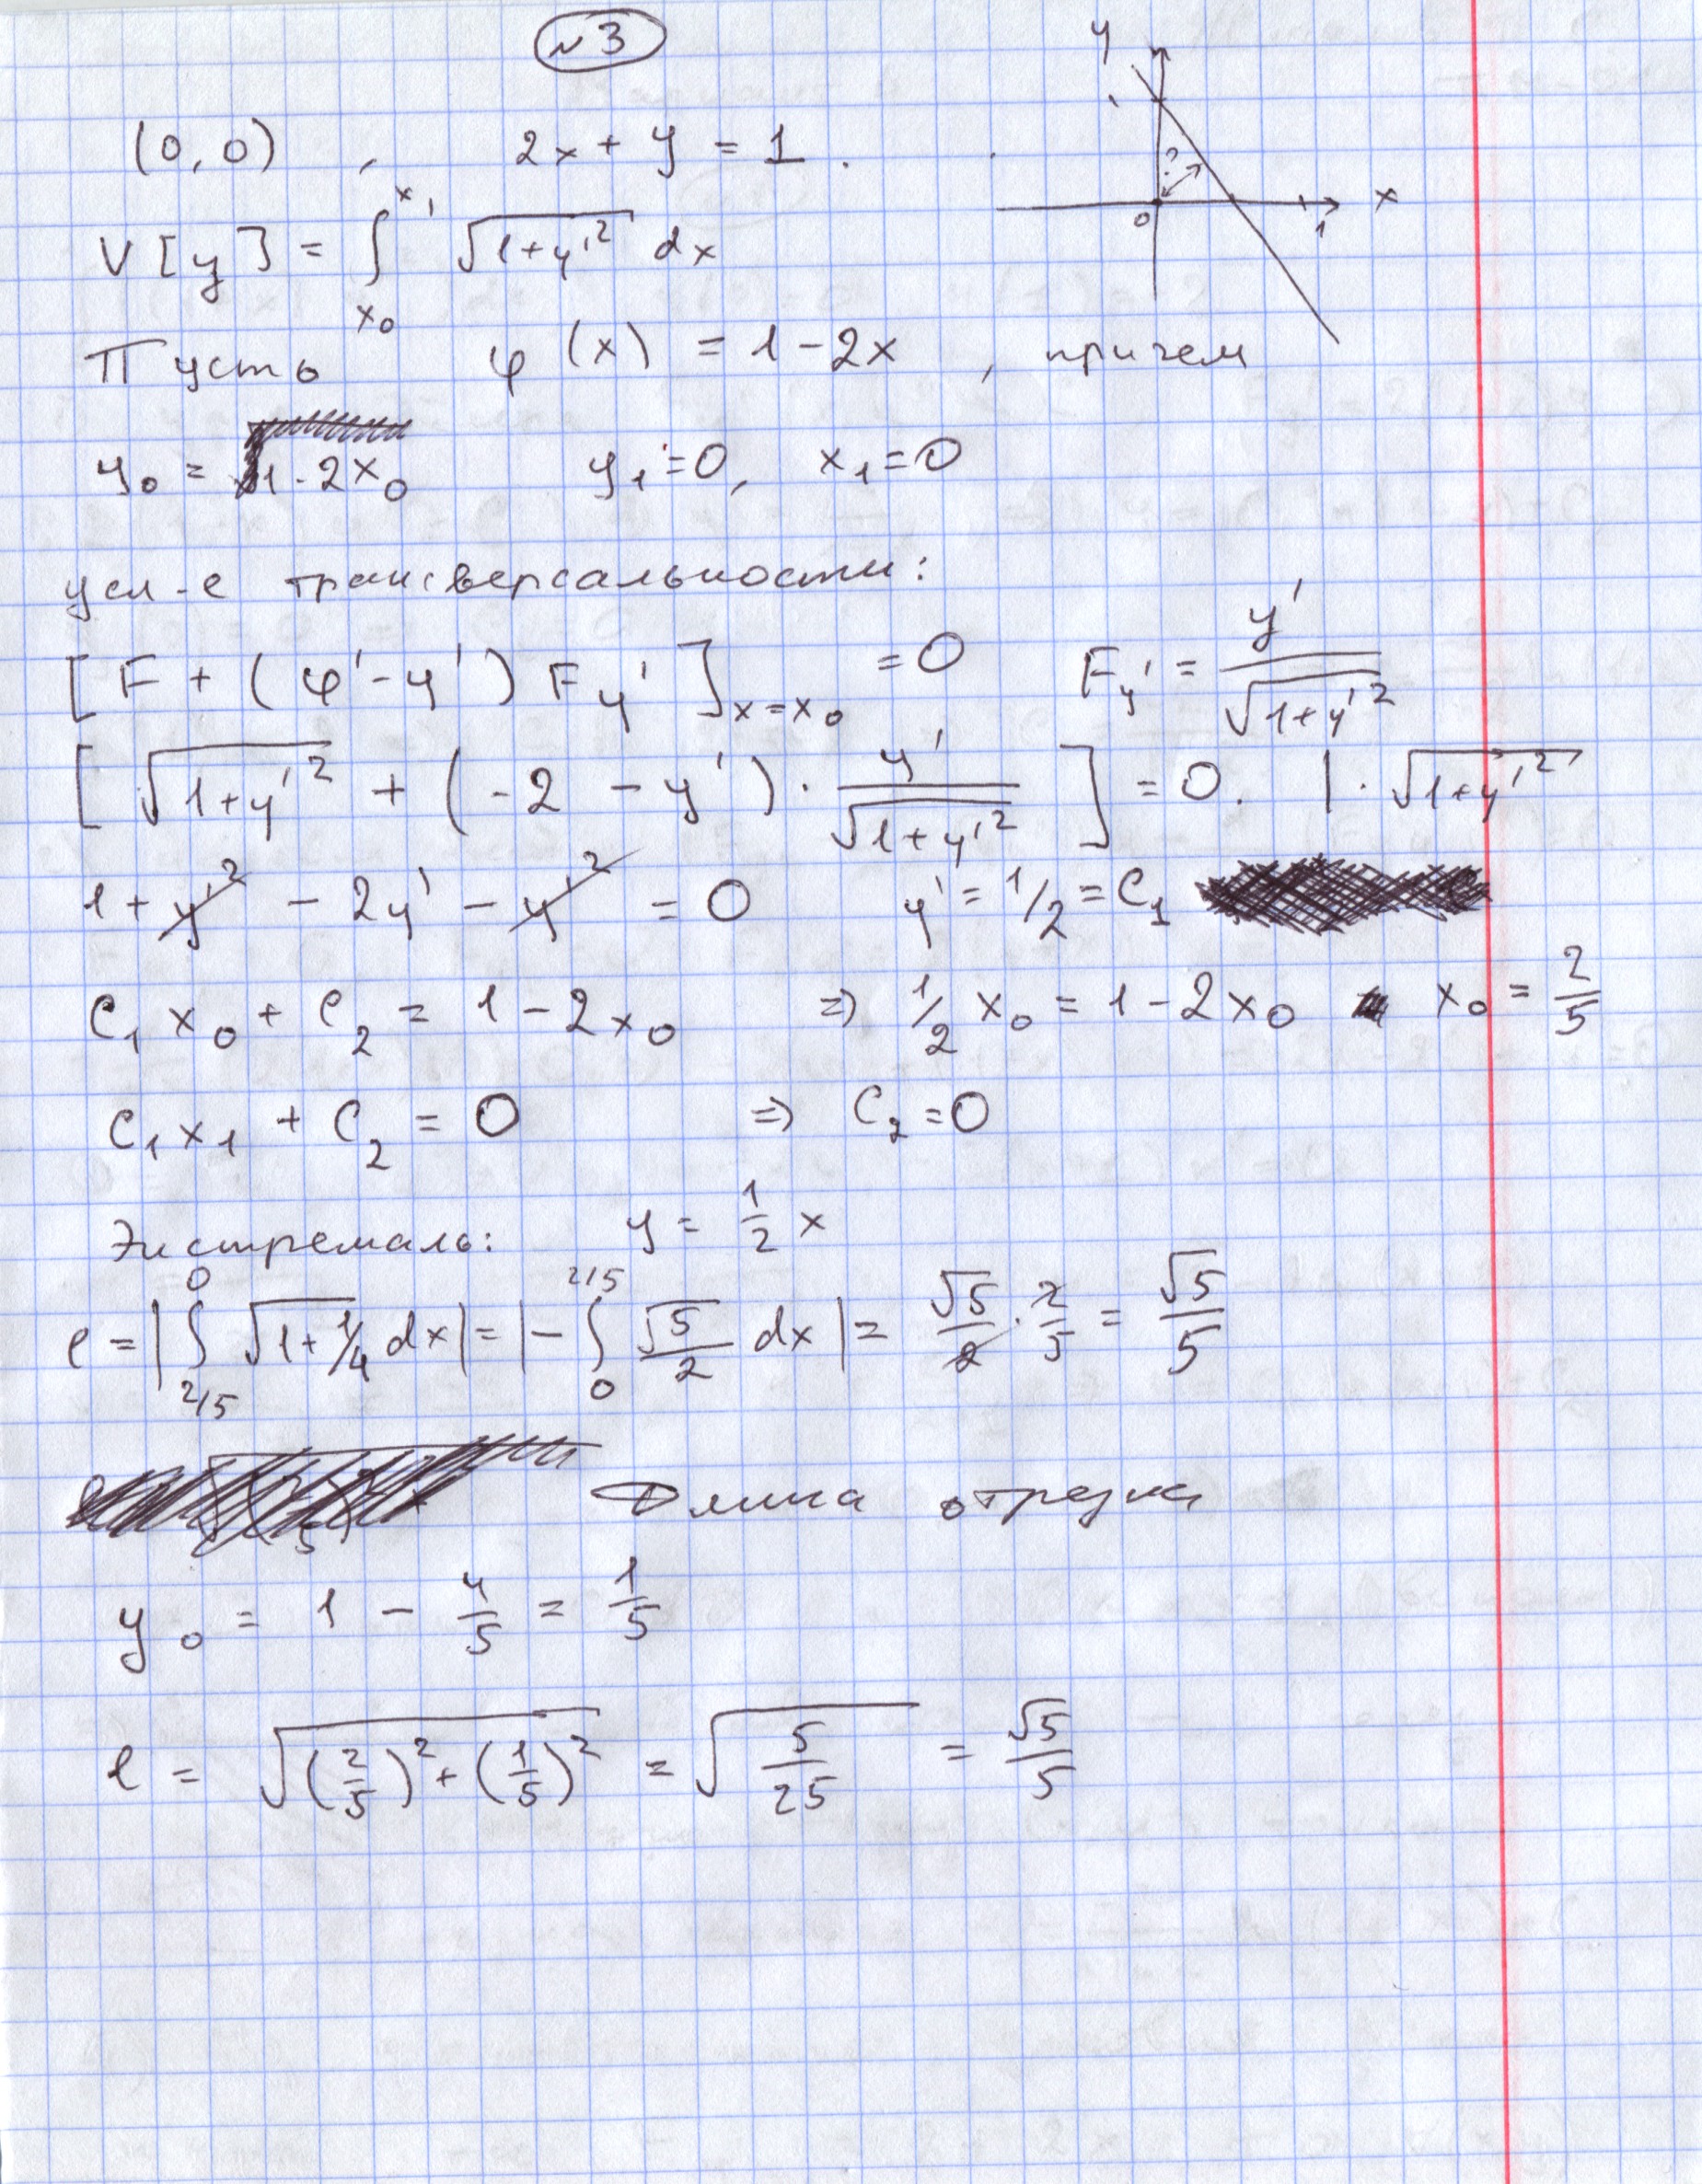 №3
(0, 0) , 2x + y = 1 .
y
x
0
1
?
V[y] = ∫_{x₀}^{x₁} √(1+y'²) dx
Пусть φ(x) = 1 - 2x , причем
y₀ = 1 - 2x₀ y₁ = 0, x₁ = 0
усл-е трансверсальности:
[F + (φ' - y') F_y']_{x=x₀} = 0 F_y' = y'/√(1+y'²)
[√(1+y'²) + (-2 - y') · y'/√(1+y'²)] = 0. | · √(1+y'²)
1 + y'² - 2y' - y'² = 0 y' = 1/2 = C₁
C₁x₀ + C₂ = 1 - 2x₀ ⇒ 1/2 x₀ = 1 - 2x₀ x₀ = 2/5
C₁x₁ + C₂ = 0 ⇒ C₂ = 0
Экстремаль: y = 1/2 x
ℓ = |∫_{2/5}^{0} √(1+1/4) dx| = |-∫_{0}^{2/5} √5/2 dx| = √5/2 · 2/5 = √5/5
Длина отрезка
y₀ = 1 - 4/5 = 1/5
ℓ = √((2/5)² + (1/5)²) = √(5/25) = √5/5